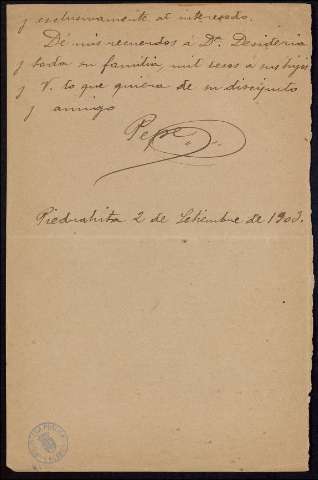 y exclusivamente al interesado.
Dé mis recuerdos á Dª. Desideria
y toda su familia, mil besos á sus hijos
y V. lo que quiera de su discípulo
y amigo
Pepe
Piedrahita 2 de Setiembre de 1903.